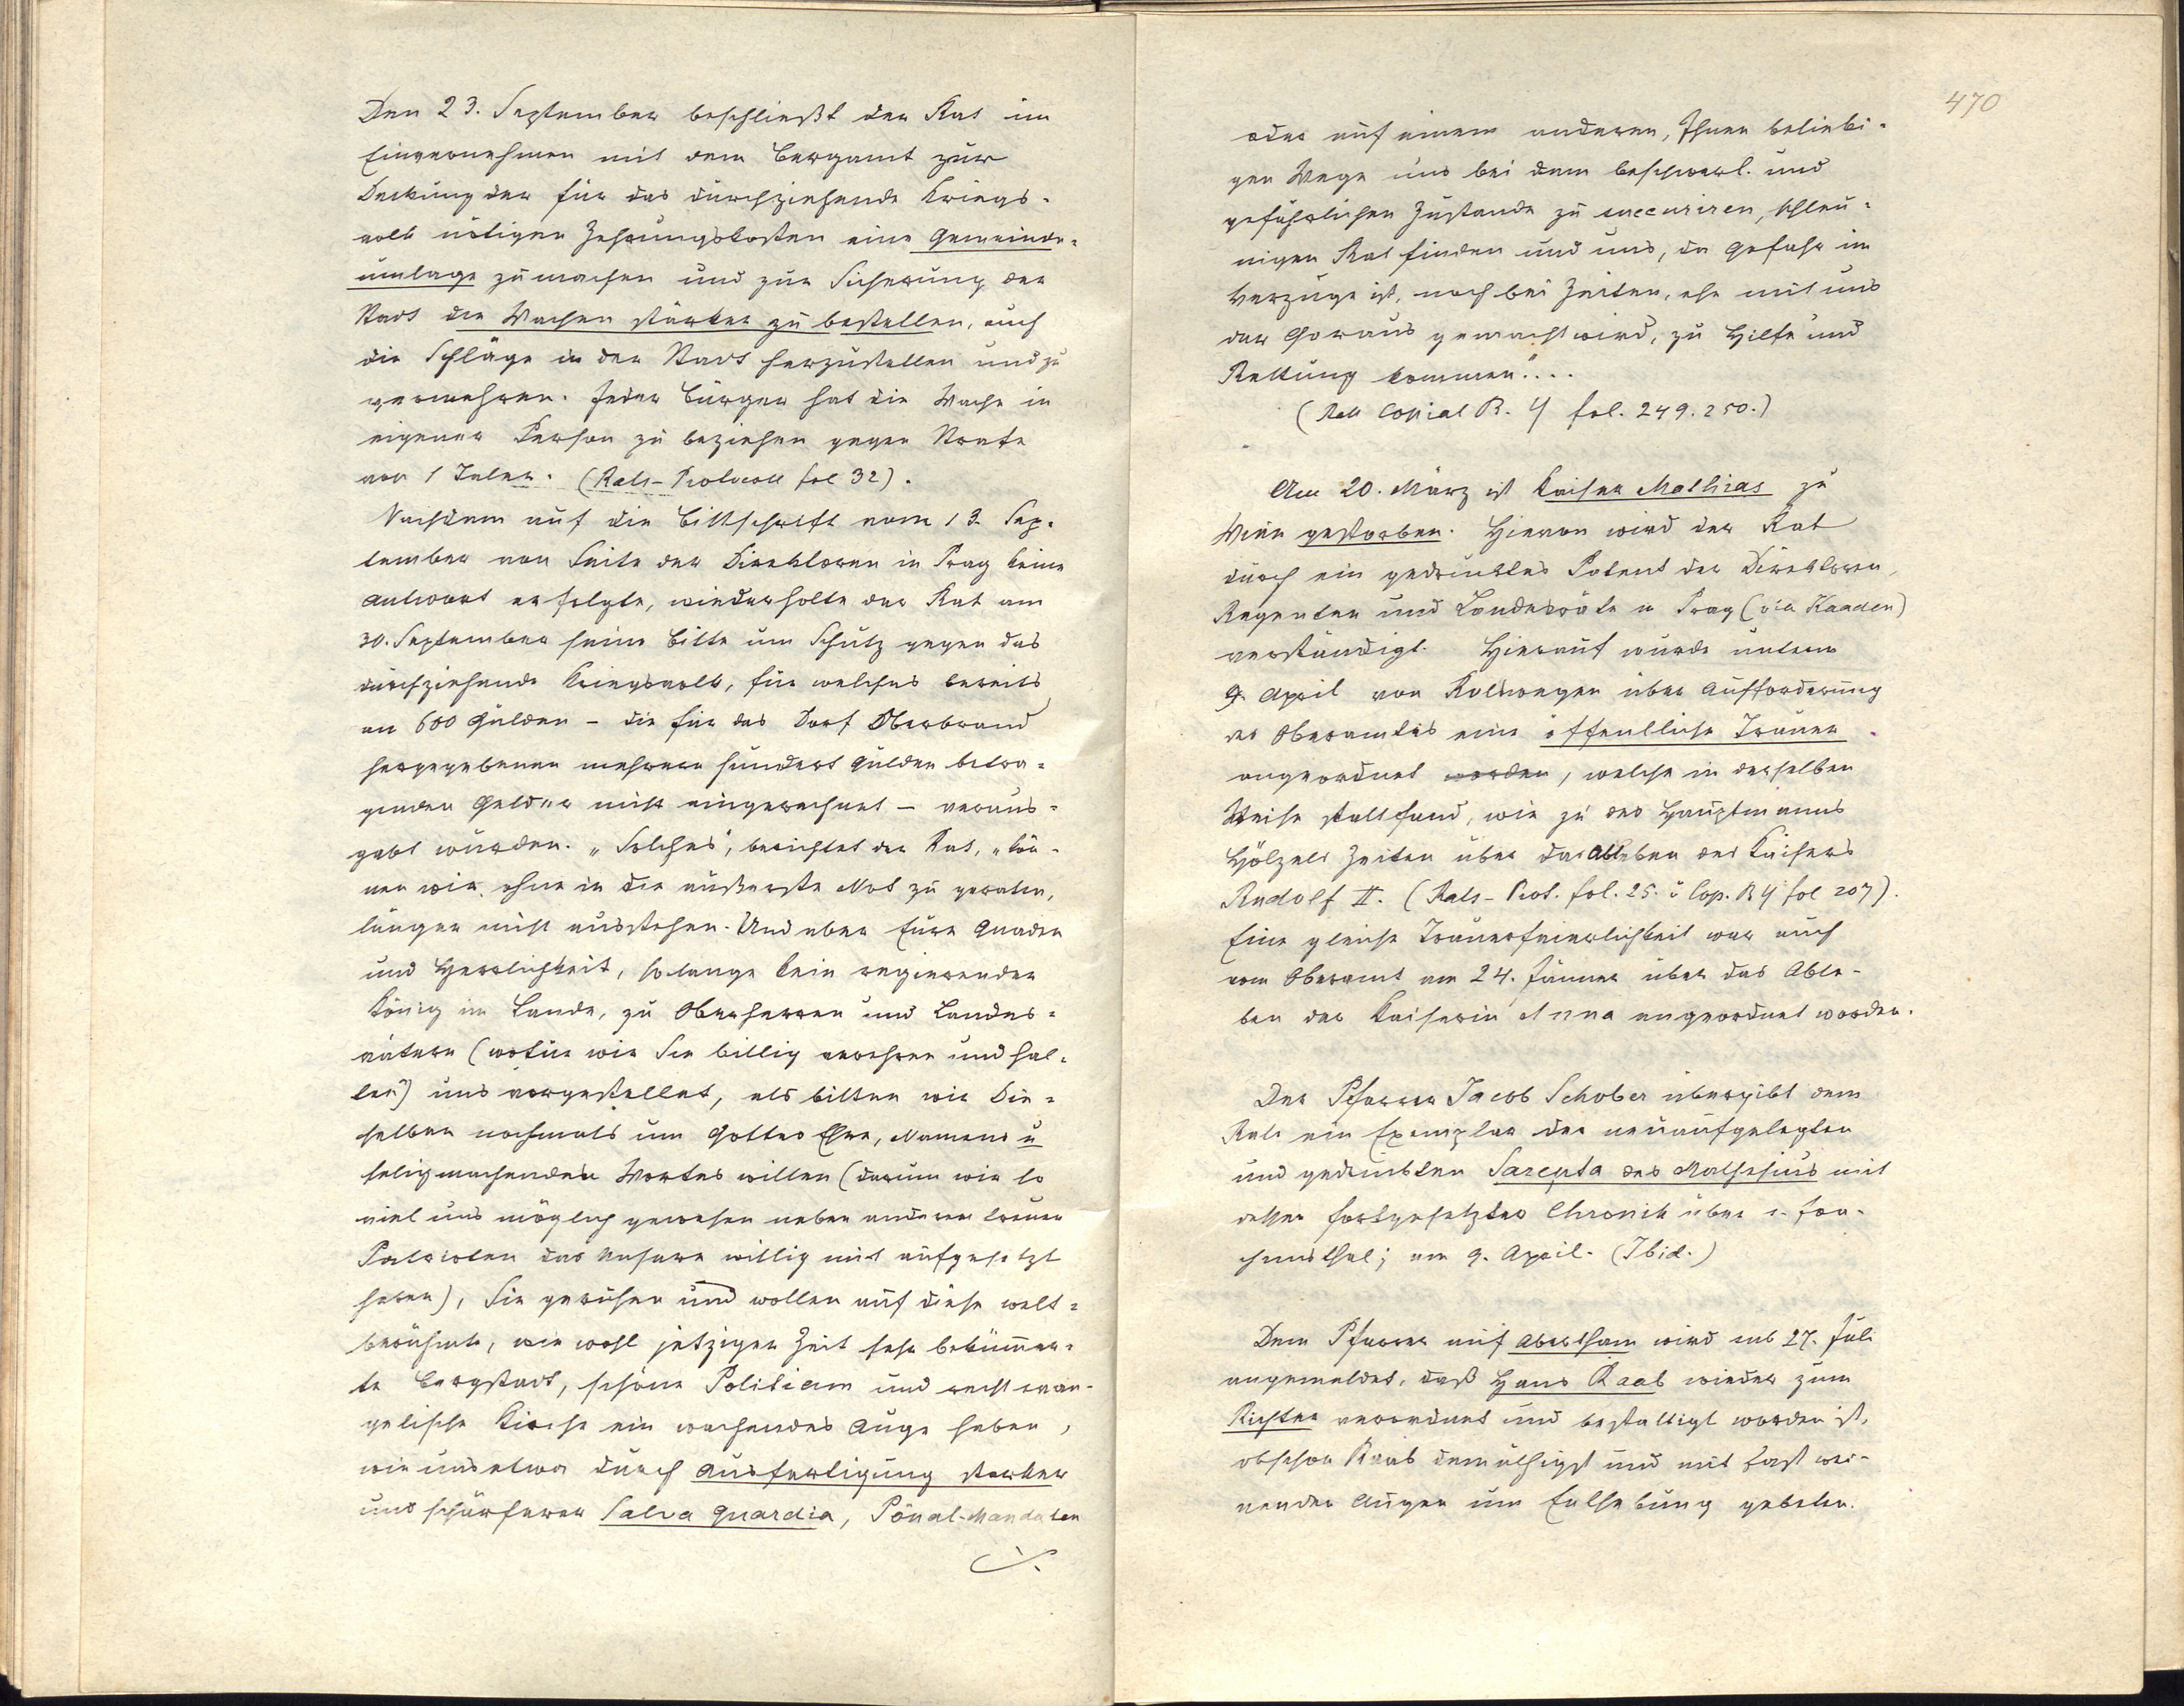 Den 23. September beschließt der Rat im
Einvernehmen mit dem Bergamt zur
Deckung der für das durchziehende Kriegs-
volk nötigen Zehrungskosten eine Gemeinde-
umlage zu machen und zur Sicherung der
Stadt die Wachen stärker zu bestellen, auch
die Schläge in der Stadt herzustellen und zu
vermehren. Jeder Bürger hat die Wache in
eigener Person zu beziehen gegen Strafe
von 1 Taler. (Rats-Protocoll fol 32).
Nachdem auf die Bittschrift vom 13. Sep-
tember von Seite der Direktoren in Prag keine
Antwort erfolgte, wiederholte der Rat am
30. September seine Bitte um Schutz gegen das
durchziehende Kriegsvolk, für welches bereits
an 600 Gulden – die für das Dorf Oberbrand
hergegebenen mehrere hundert Gulden betra-
genden Gelder nicht eingerechnet – veraus-
gabt wurden. „Solches", berichtet der Rat, „kön-
nen wir, ohne in die äußerste Not zu geraten,
länger nicht ausstehen. Und aber Eure Gnaden
und Herrlichkeit, solange kein regierender
König im Lande, zu Oberherren und Landes-
vätern (wofür wir Sie billig verehren und hal-
ten) uns vorgestellet, als bitten wir Die-
selben nochmals um Gottes Ehre, Namens u
seligmachenden Wortes willen (darum wir so
viel uns möglich gewesen neben anderen treuen
Patrioten das Unsere willig mit aufgesetzt
haben), Sie geruhen und wollen auf diese welt-
berühmte, wie wohl jetziger Zeit sehr bekümer-
te Bergstadt, schöne Politiam und recht evan-
gelische Kirche ein wachendes Auge haben,
wie uns etwa durch Ausfertigung starker
und schärferer Salva guardia, Pönal-Mandaten
./.
470
oder auf einem anderen, Ihnen beliebi-
gen Wege uns bei dem beschwerl. und
gefährlichen Zustande zu succuriren, schleu-
nigen Rat finden und uns, da Gefahr im
Verzuge ist, noch bei Zeiten, ehe mit uns
der Garaus gemacht wird, zu Hilfe und
Rettung kommen"....
(Rats Copial B. 4 fol. 249. 250.)
Am 20. März ist Kaiser Mathias zu
Wien gestorben. Hievon wird der Rat
durch ein gedrucktes Patent der Direktoren,
Regenten und Landesräte in Prag (via Kaaden)
verständigt. Hierauf wurde unterm
9. April von Ratswegen über Aufforderung
des Oberamtes eine öffentliche Trauer
angeordnet worden, welche in derselben
Weise stattfand, wie zu des Hauptmanns
Hölzels Zeiten über das Ableben des Kaisers
Rudolf II. (Rats-Prot. fol. 25. u Cop. B 4 fol 207).
Eine gleiche Trauerfeierlichkeit war auch
vom Oberamt am 24. Jänner über das Able-
ben der Kaiserin Anna angeordnet worden.
Der Pfarrer Jacob Schober übergibt dem
Rate ein Exemplar der neuaufgelegten
und gedruckten Sarepta des Mathesius mit
dessen fortgesetzter Chronik über s. Joa-
chimsthal; am 9. April. (Ibid.)
Dem Pfarrer auf Abertham wird sub 27. Juli
angemeldet, daß Hans Raab wieder zum
Richter verordnet und bestattigt worden ist,
obschon Raab demüthigst und mit fast wei-
nenden Augen um Enthebung gebeten.